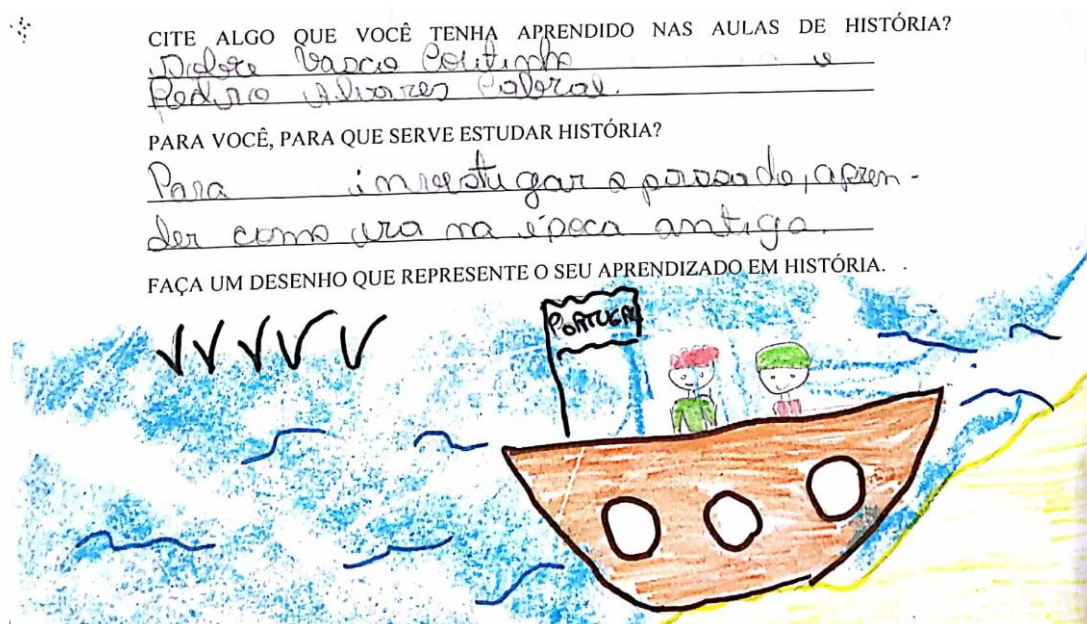 CITE ALGO QUE VOCÊ TENHA APRENDIDO NAS AULAS DE HISTÓRIA?
Sobre Vasco Coutinho e
Pedro Alvares Cabral.
PARA VOCÊ, PARA QUE SERVE ESTUDAR HISTÓRIA?
Para investugar o passado, apren-
der como era na época antiga.
FAÇA UM DESENHO QUE REPRESENTE O SEU APRENDIZADO EM HISTÓRIA.
PORTUGAL